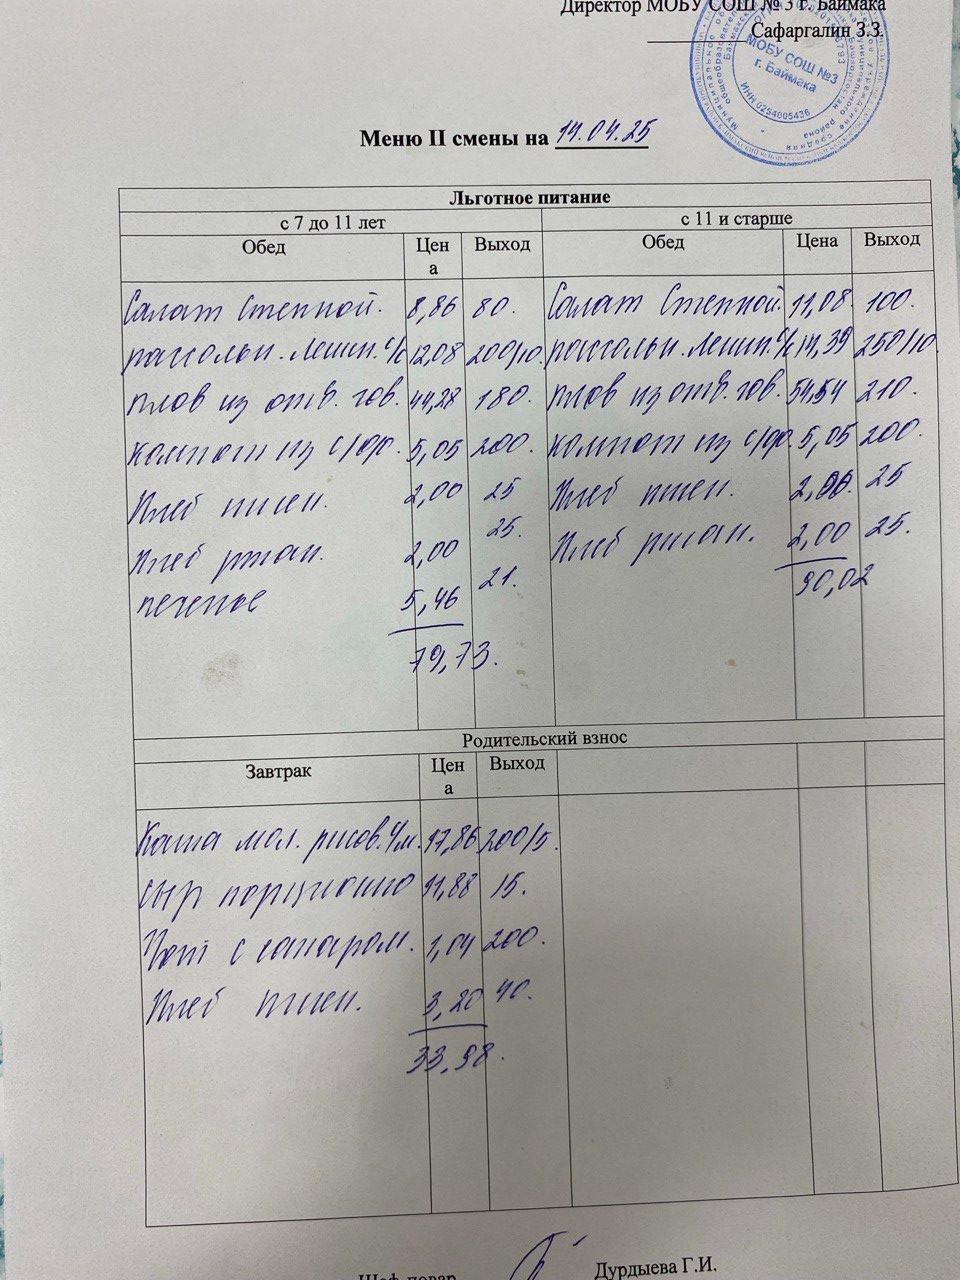 Директор МОБУ СОШ № 3 г. Баймака
Сафаргалин З.З.
МОБУ СОШ №3
г. Баймака
ИНН 0254005436
Меню II смены на 14.04.25
Льготное питание
с 7 до 11 лет с 11 и старше
Обед Цена Выход Обед Цена Выход
Салат Степной. 8,86 80. Салат Степной. 11,08. 100.
рассольн. Ленин. с/с 12,08 200/10. рассольн. Ленин. с/с 14,39 250/10
плов из отв. гов. 44,28 180. плов из отв. гов. 54,54 210.
компот из с/фр. 5,05 200. компот из с/фр. 5,05 200.
Хлеб пшен. 2,00 25 Хлеб пшен. 2,00. 25
Хлеб ржан. 2,00 25. Хлеб ржан. 2,00 25.
печенье 5,46 21. 90,02
79,73.
Родительский взнос
Завтрак Цена Выход
Каша мол. рисов. с/м. 17,86 200/5.
Сыр порционно 11,88 15.
Чай с сахаром. 1,04 200.
Хлеб пшен. 3,20 40.
33,98.
Шеф-повар Дурдыева Г.И.